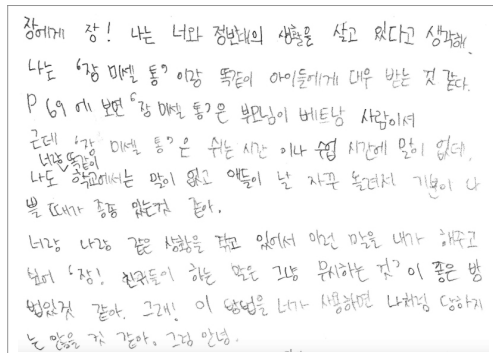 장에게 장! 나는 너와 정반대의 생활을 살고 있다고 생각해.
나도 '장 미셸 통'이랑 똑같이 아이들에게 대우 받는 것 같다.
P 69 에 보면 '장 미셸 통'은 부모님이 베트남 사람이셔
근데 '장 미셸 통'은 쉬는 시간 이나 수업 시간에 말이 없데,
너랑 똑같이
나도 학교에서는 말이 없고 애들이 날 자꾸 놀려서 기분이 나
쁠 때가 종종 있는것 같아.
너랑 나랑 같은 생활을 하고 있어서 이런 말을 내가 해주고
'장! 친구들이 하는 말은 그냥 무시하는 것'이 좋은 방
법인것 같아. 그래! 이 방법을 너가 사용하면 나처럼 당하지
는 않을 것 같아. 그럼 안녕.